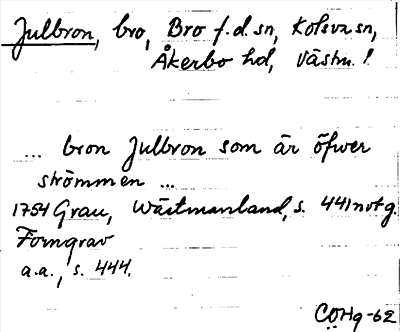 Julbron, bro, Bro f.d. sn, Kolsva sn,
Åkerbo hd, Västm. l.
... bron Julbron som är öfwer
strömmen ...
1754 Grau, Wästmanland, s. 441 not g.
Forngrav
a.a., s. 444.
COHg-62